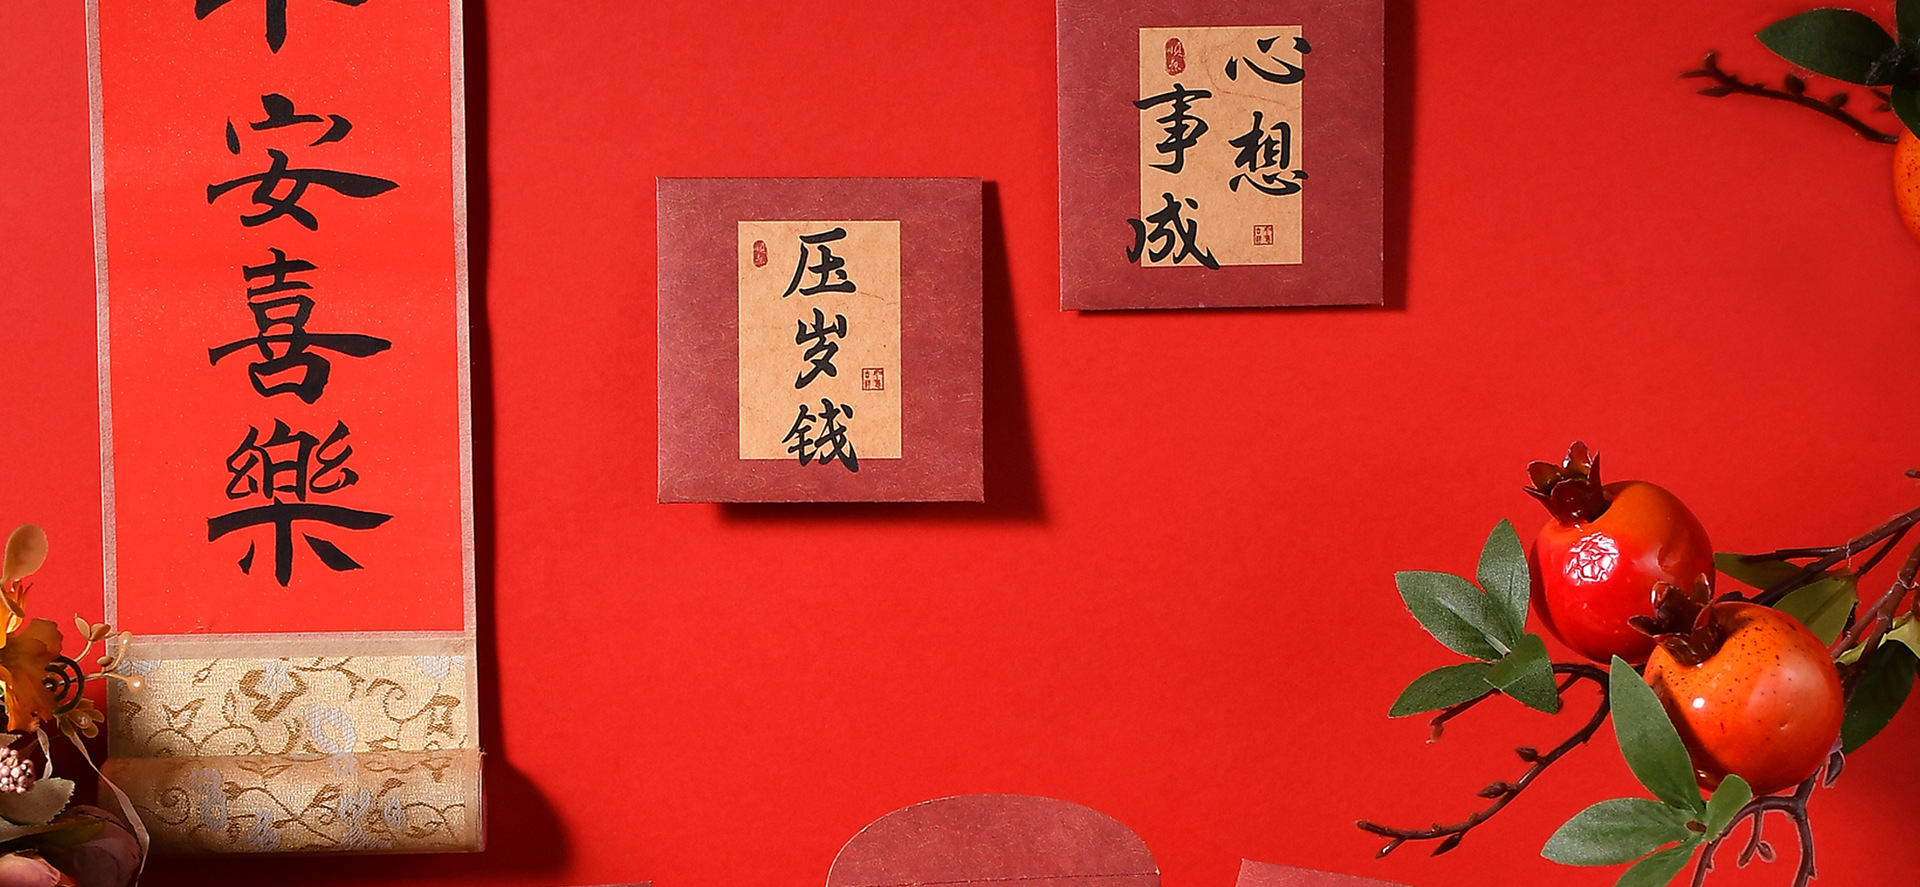 安喜樂
压岁钱
心想
事成